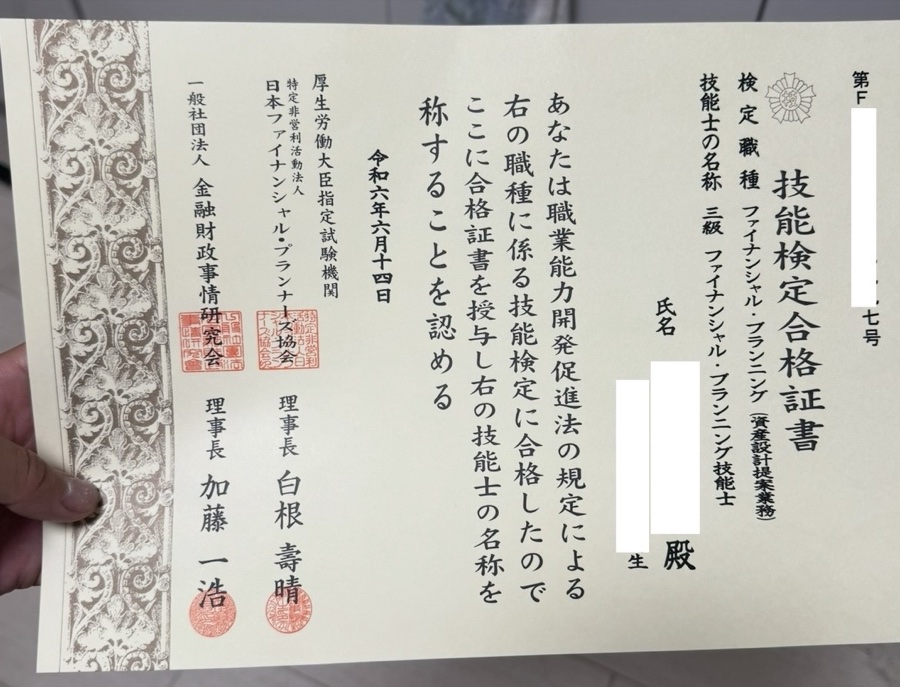 第F
七号
技能検定合格証書
検定職種 ファイナンシャル・プランニング(資産設計提案業務)
技能士の名称 三級 ファイナンシャル・プランニング技能士
氏名
殿
生
あなたは職業能力開発促進法の規定による
右の職種に係る技能検定に合格したので
ここに合格証書を授与し右の技能士の名称を
称することを認める
令和六年六月十四日
厚生労働大臣指定試験機関
特定非営利活動法人
日本ファイナンシャル・プランナーズ協会 理事長 白根 壽晴
一般社団法人 金融財政事情研究会 理事長 加藤 一浩